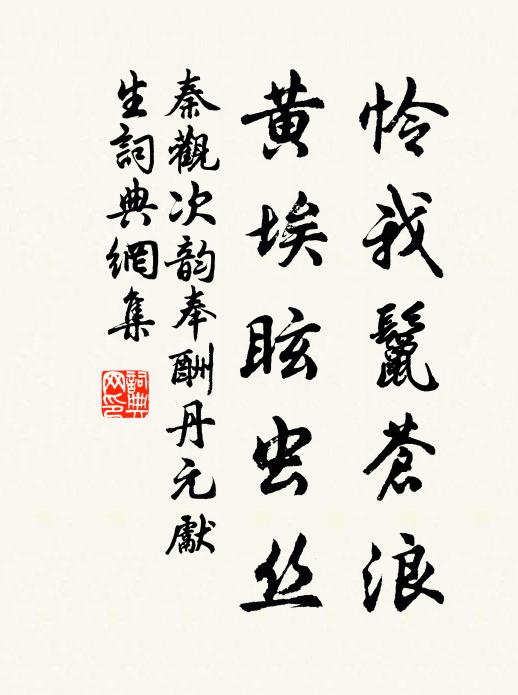 怜我鬣苍浪
黄埃眩虫丝
秦觀次韵奉酬丹元獻
生詞典網集
詞典网印